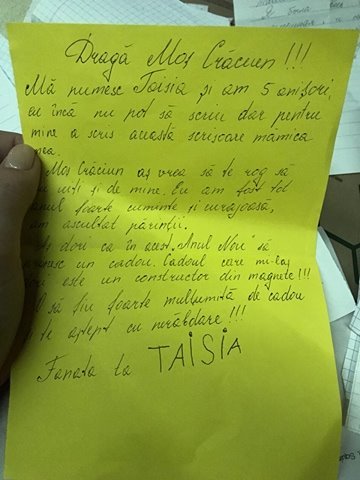 Dragă Moș Crăciun !!!
Mă numesc Taisia și am 5 anișori,
eu încă nu pot să scriu dar pentru
mine a scris această scrisoare mămica
mea.
Moș Crăciun aș vrea să te rog să
nu uiți și de mine. Eu am fost tot
anul foarte cuminte și curajoasă,
am ascultat părinții.
Aș dori ca în acest „Anul Nou" să
primesc un cadou. Cadoul care mi-l aș
dori este un constructor din magnete!!!
O să fiu foarte mulțumită de cadou
te aștept cu nerăbdare!!!
Fanata ta TAISIA